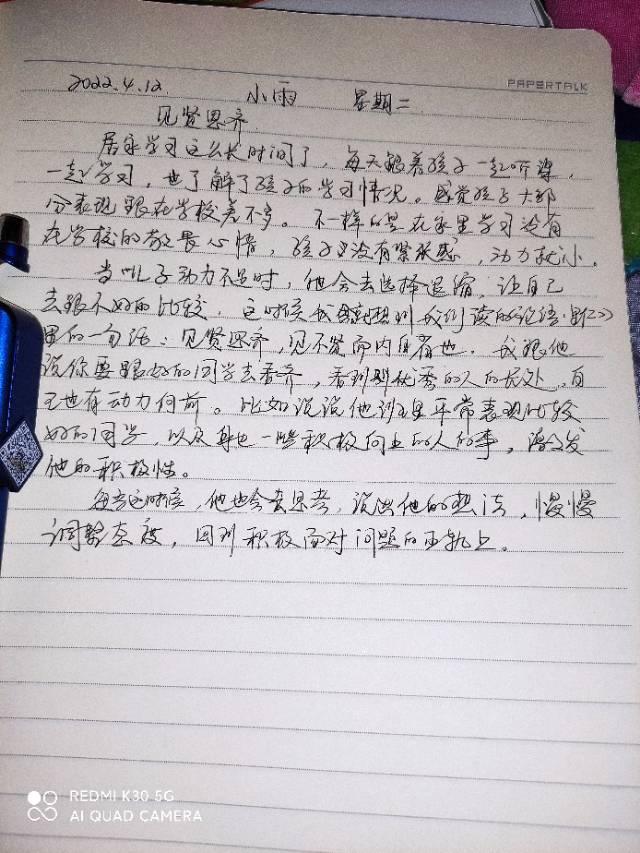 PAPERTALK
2022.4.12 小雨 星期二
见贤思齐
居家学习这么长时间了，每天跟着孩子一起听课，
一起学习，也了解了孩子的学习情况。感觉孩子大部
分表现跟在学校差不多。不一样的是在家里学习没有
在学校的敬畏心情，孩子又没有紧张感，动力就小，
当儿子动力不足时，他会去选择退缩，让自己
去跟不好的比较，这时候我就想到我们读的论语·里仁》
里的一句话：见贤思齐，见不贤而内自省也。我跟他
说你要跟好的同学去看齐，看到别优秀的人的长处，自
己也有动力向前。比如说说他班里平常表现比较
好的同学，以及身边一些积极向上的人的事，激发
他的积极性。
每当这时候，他也会去思考，说出他的想法，慢慢
调整态度，回到积极面对问题的正轨上。
REDMI K30 5G
AI QUAD CAMERA